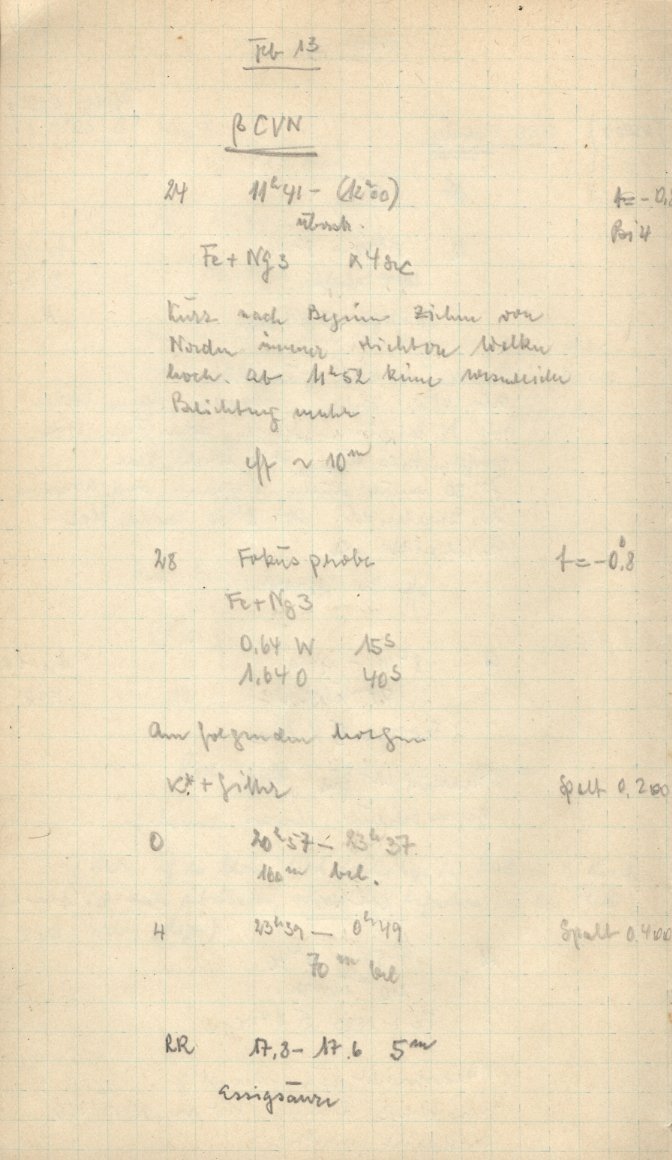 Feb 13
β CVN
24 11ʰ41 – (12ʰ00) t = – 0,8
übsch. Bi 4
Fe + Ng 3 x 4 sec
Kurz nach Beginn ziehen von
Norden immer dichtere Wolken
hoch. Ab 11ʰ52 keine
Belichtung mehr
eff ~ 10ᵐ
28 Fokusprobe t = –0,8
Fe + Ng 3
0.64 W 15ˢ
1.64 O 40ˢ
Am folgenden Morgen
K* + Gitter Spalt 0,200
0 20ʰ57 – 23ʰ37
160ᵐ bel.
4 23ʰ39 – 0ʰ49 Spalt 0,400
70ᵐ bel
RR 17,3 – 17.6 5ᵐ
Essigsäure